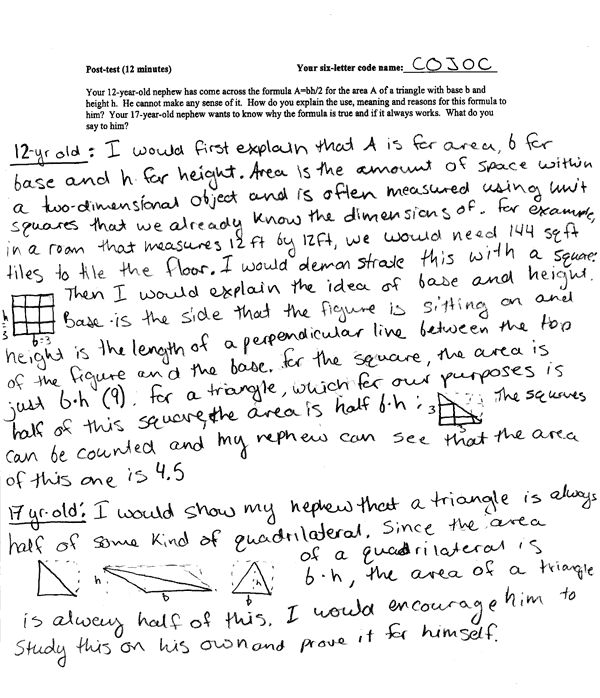 Post-test (12 minutes) Your six-letter code name: COJOC
Your 12-year-old nephew has come across the formula A=bh/2 for the area A of a triangle with base b and
height h. He cannot make any sense of it. How do you explain the use, meaning and reasons for this formula to
him? Your 17-year-old nephew wants to know why the formula is true and if it always works. What do you
say to him?
12-yr old: I would first explain that A is for area, b for
base and h for height. Area is the amount of space within
a two-dimensional object and is often measured using unit
squares that we already know the dimensions of. For example,
in a room that measures 12 ft by 12ft, we would need 144 sqft
tiles to tile the floor. I would demonstrate this with a square:
Then I would explain the idea of base and height.
h=3
b=3
Base is the side that the figure is sitting on and
height is the length of a perpendicular line between the top
of the figure and the base. For the square, the area is
just b·h (9). For a triangle, which for our purposes is
half of this square, the area is half b·h: 3 3 The squares
can be counted and my nephew can see that the area
of this one is 4.5
17 yr-old: I would show my nephew that a triangle is always
half of some kind of quadrilateral. Since the area
of a quadrilateral is
h b h b
b·h, the area of a triangle
is always half of this. I would encourage him to
study this on his own and prove it for himself.